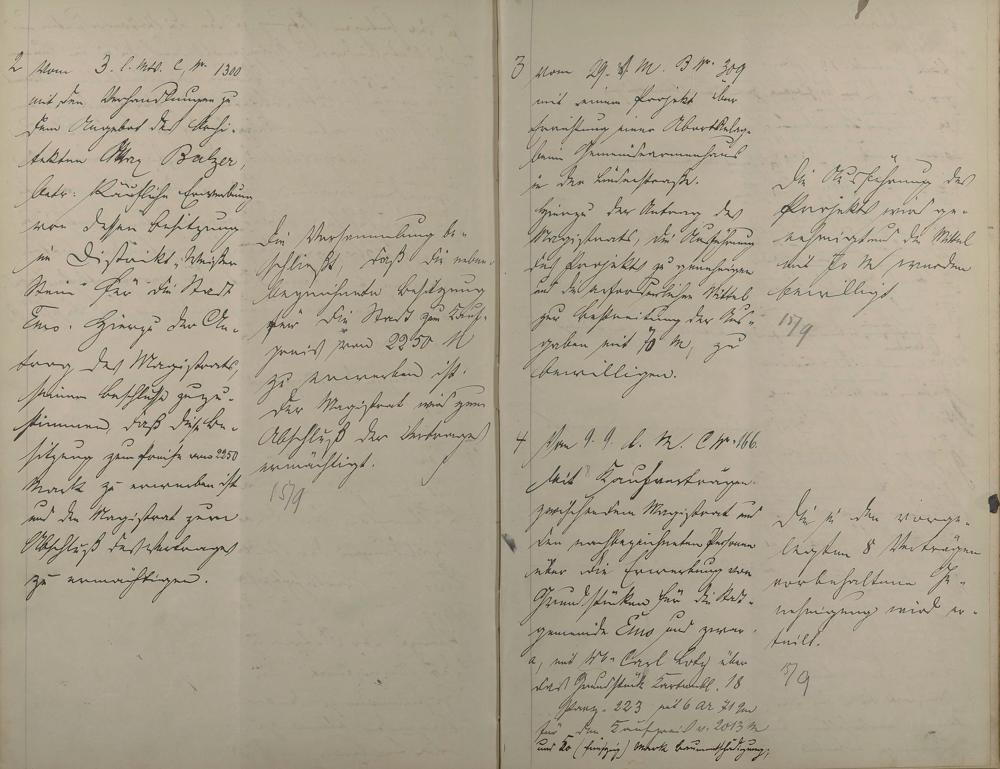 2 Vom 3. l. Mts. C, No. 1300
mit den Verhandlungen zu
dem Angebot des Archi-
tekten Max Balzer,
betr: Käufliche Erwerbung
von dessen Besitzung
im Distrikt "Weißer
Stein" für die Stadt
Ems. Hierzu der An-
trag des Magistrats,
seinem Beschlusse zuzu-
stimmen, daß diese Be-
sitzung zum Preise von 2250
Mark zu erwerben ist
und den Magistrat zum
Abschluß des Vertrages
zu ermächtigen.
Die Versammlung be-
schließt, daß die neben-
bezeichnete Besitzung
für die Stadt zum Kauf-
preis von 2250 M
zu erwerben ist.
Der Magistrat wird zum
Abschluß des Vertrages
ermächtigt.
15/9
3 Vom 29. v. M. B No. 309
mit einem Projekt über
Errichtung einer Abortanlage
beim Gemeindearmenhaus
in der Lindenstraße.
Hierzu der Antrag des
Magistrats, die Ausführung
des Projekts zu genehmigen
und die erforderlichen Mittel
zur Bestreitung der Aus-
gaben mit 70 M, zu
bewilligen.
Die Ausführung des
Projekts wird ge-
nehmigt und die Mittel
mit 70 M werden
bewilligt.
15/9
4 Vom 9. d. M. C No. 166.
Mit Kaufverträgen
zwischen dem Magistrat und
den nachbezeichneten Personen
über die Erwerbung von
Grundstücken für die Stadt-
gemeinde Ems und zwar:
a, mit Carl Lotz über
das Grundstück Kartenbl. 18
Parz. 223 mit 6 ar 71 qm
für den Kaufpreis v. 2013 M
und 50 (fünfzig) Mark Baumentschädigung;
Die in den vorge-
legten 8 Verträgen
vorbehaltene Ge-
nehmigung wird er-
teilt.
15/9